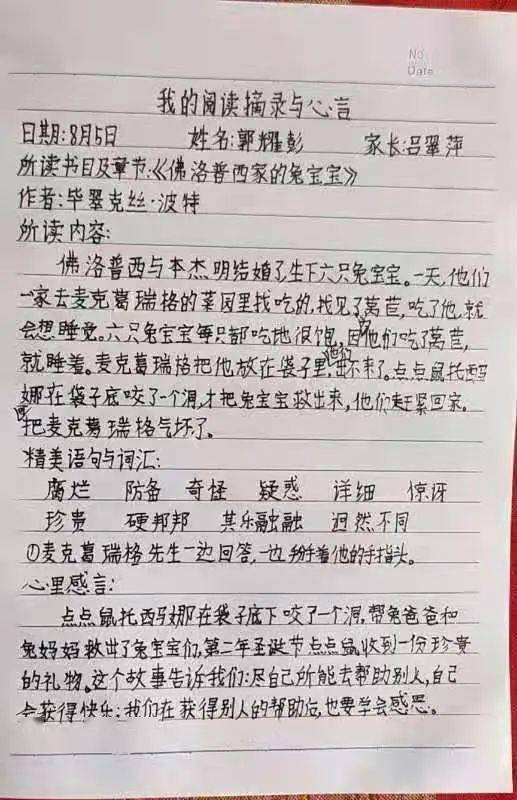 No.
Date
我的阅读摘录与心言
日期:8月5日 姓名:郭耀彭 家长:吕翠萍
所读书目及章节:《佛洛普西家的兔宝宝》
作者:毕翠克丝·波特
所读内容:
佛洛普西与本杰明结婚了,生下六只兔宝宝。一天,他们
一家去麦克葛瑞格的菜园里找吃的,找见了莴苣,吃了他,就
会想睡觉。六只兔宝宝每只都吃地很饱,因他们吃了莴苣,
就睡着。麦克葛瑞格把他放在袋子里,他们出不来了。点点鼠托西玛
娜在袋子底咬了一个洞,才把兔宝宝救出来,他们赶紧回家。
把麦克葛瑞格气坏了。
精美语句与词汇:
腐烂 防备 奇怪 疑惑 详细 惊讶
珍贵 硬邦邦 其乐融融 迥然不同
①麦克葛瑞格先生一边回答,一边掰着他的手指头。
心里感言:
点点鼠托西玛娜在袋子底下咬了一个洞,帮兔爸爸和
兔妈妈救出了兔宝宝们,第二年圣诞节点点鼠收到一份珍贵
的礼物。这个故事告诉我们:尽自己所能去帮助别人,自己
会获得快乐;我们在获得别人的帮助后,也要学会感恩。